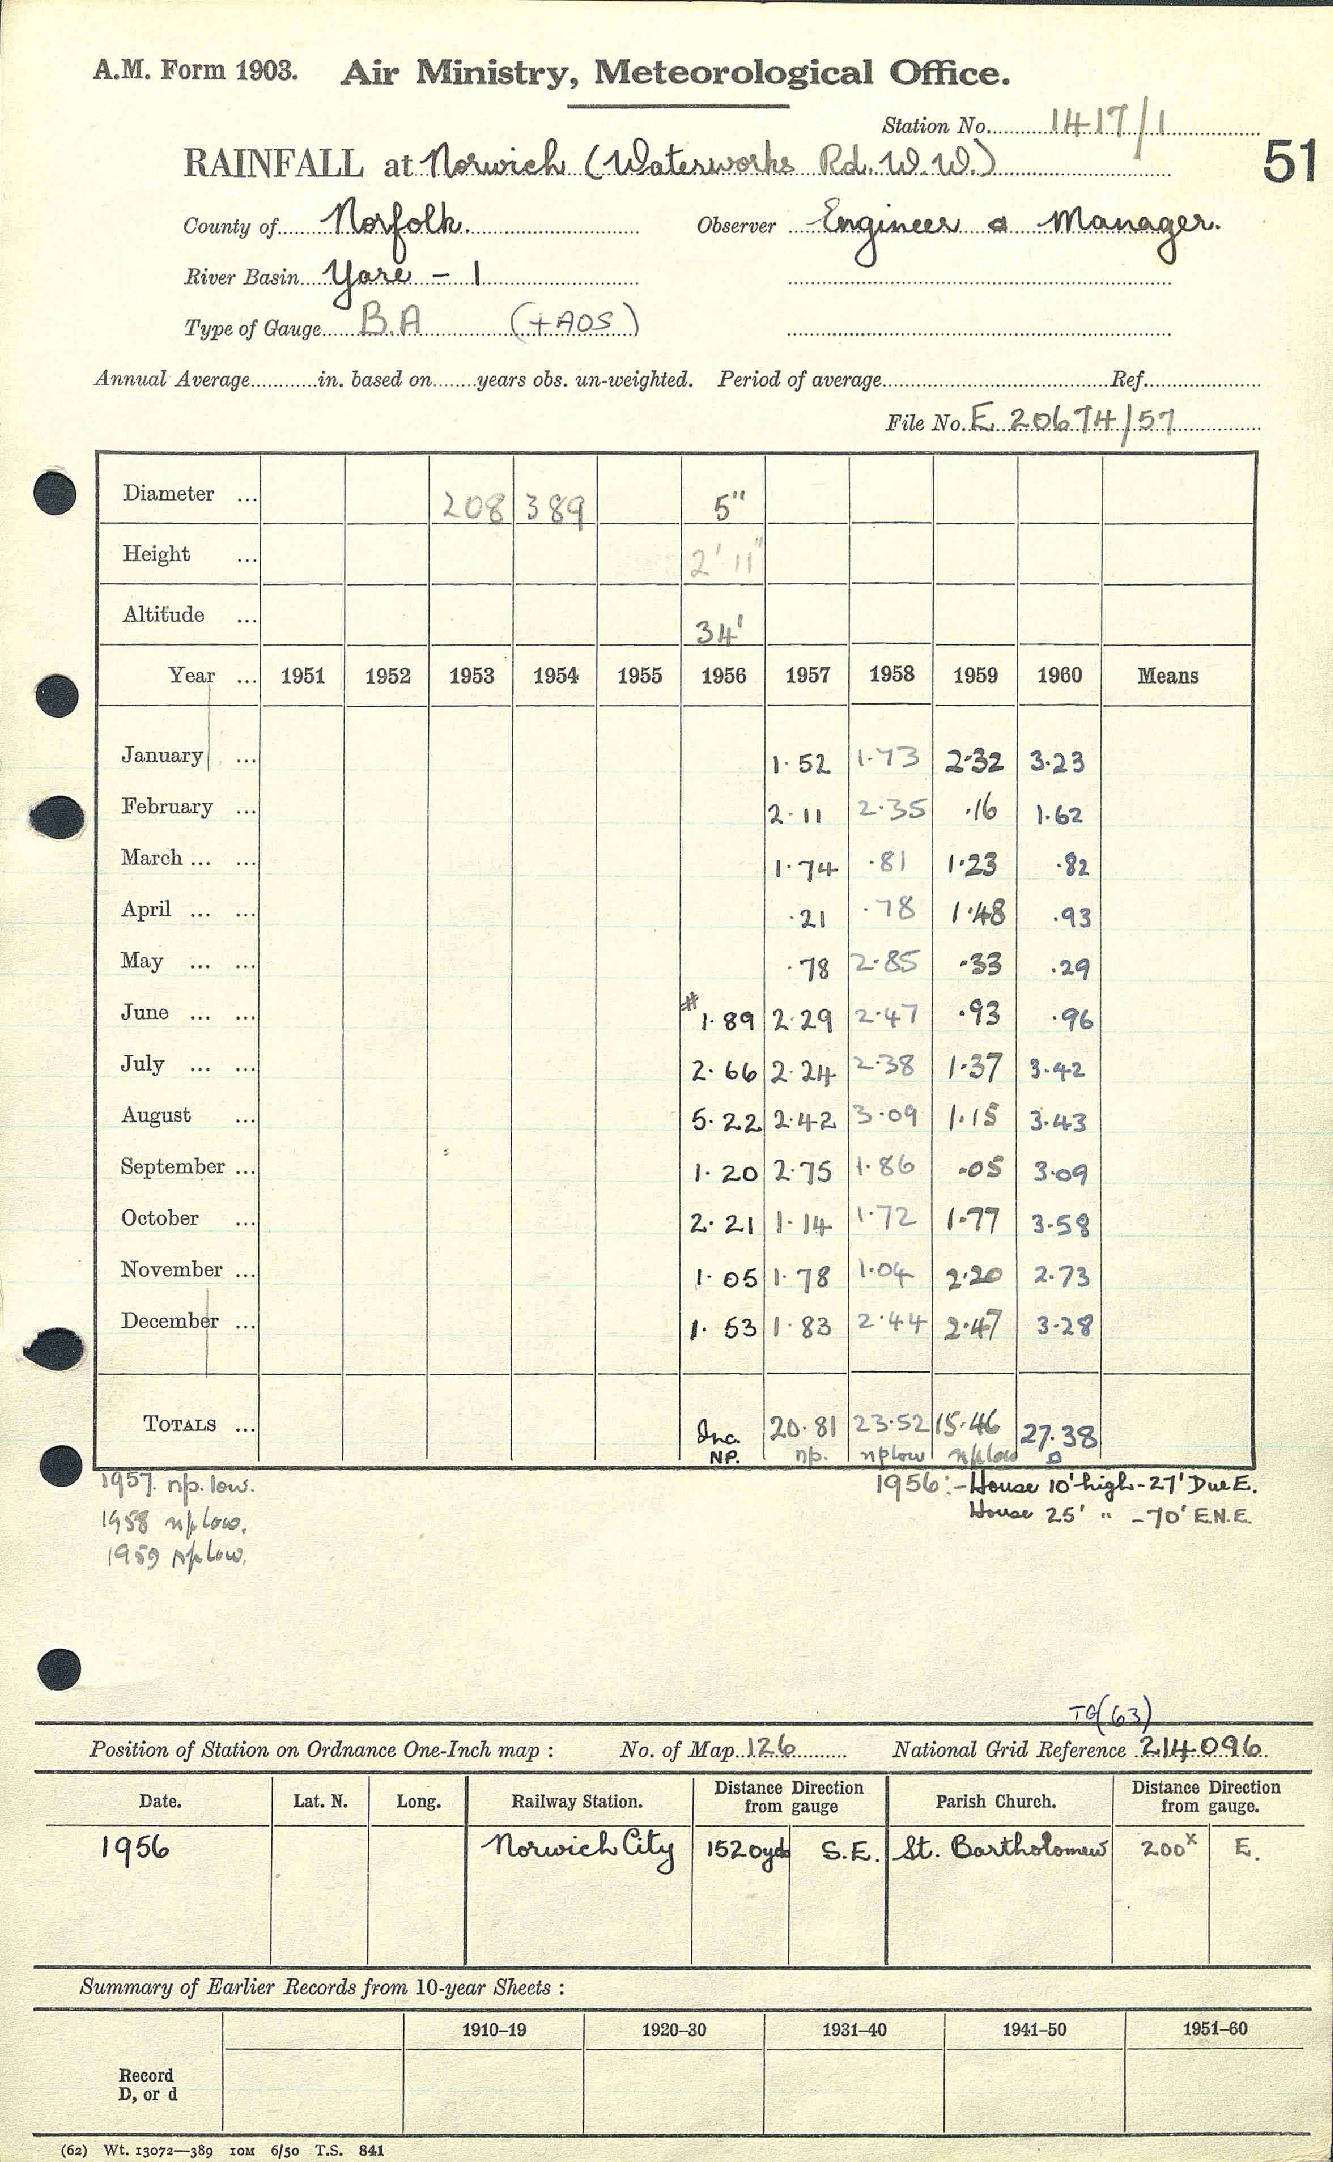 A.M. Form 1903. Air Ministry, Meteorological Office.
Station No. 1417/1
RAINFALL at Norwich (Waterworks Rd. W.W.)
51
County of Norfolk. Observer Engineer & Manager.
River Basin Yare - 1
Type of Gauge B.A (+AOS)
Annual Average in. based on years obs. un-weighted. Period of average Ref.
File No. E 20674/57
Diameter ... 208 389 5"
Height ... 2' 11"
Altitude ... 34'
Year ... 1951 1952 1953 1954 1955 1956 1957 1958 1959 1960 Means
January ... 1.52 1.73 2.32 3.23
February ... 2.11 2.35 .16 1.62
March ... ... 1.74 .81 1.23 .82
April ... ... .21 .78 1.48 .93
May ... ... .78 2.85 .33 .29
June ... ... # 1.89 2.29 2.47 .93 .96
July ... ... 2.66 2.24 2.38 1.37 3.42
August ... 5.22 2.42 3.09 1.15 3.43
September ... 1.20 2.75 1.86 .05 3.09
October ... 2.21 1.14 1.72 1.77 3.58
November ... 1.05 1.78 1.04 2.20 2.73
December ... 1.53 1.83 2.44 2.47 3.28
TOTALS ... Inc. 20.81 23.52 15.46 27.38
NP. np. nplow nplow D
1957. np. low. 1956:- House 10' high - 27' Due E.
1958 nplow. House 25' " - 70' E.N.E.
1959 nplow.
TG(63)
Position of Station on Ordnance One-Inch map : No. of Map 126 National Grid Reference 214096
Date. Lat. N. Long. Railway Station. Distance Direction from gauge Parish Church. Distance Direction from gauge.
1956 Norwich City 1520yds S.E. St. Bartholomew 200x E.
Summary of Earlier Records from 10-year Sheets :
1910–19 1920–30 1931–40 1941–50 1951–60
Record
D, or d
(62) Wt. 13072—389 10M 6/50 T.S. 841